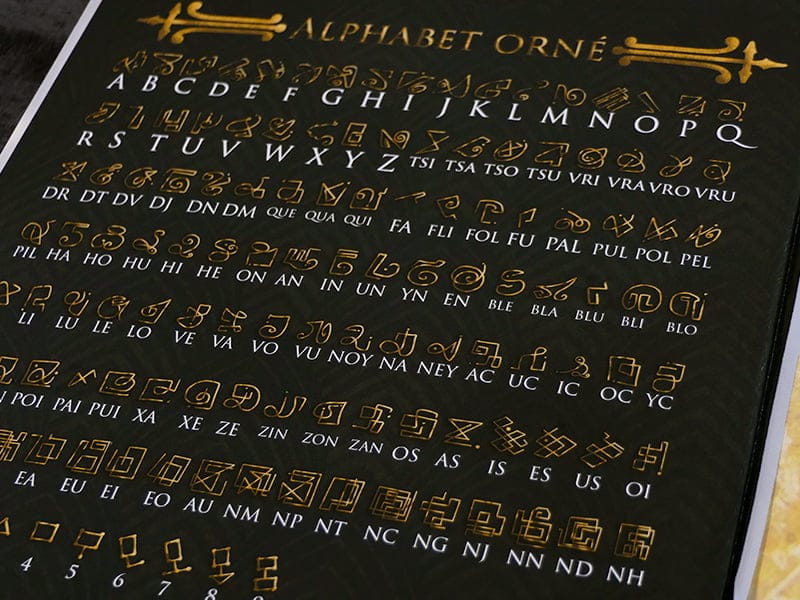 ALPHABET ORNÉ
A B C D E F G H I J K L M N O P Q
R S T U V W X Y Z TSI TSA TSO TSU VRI VRA VRO VRU
DR DT DV DJ DN DM QUE QUA QUI FA FLI FOL FU PAL PUL POL PEL
PIL HA HO HU HI HE ON AN IN UN YN EN BLE BLA BLU BLI BLO
LI LU LE LO VE VA VO VU NOY NA NEY AC UC IC OC YC
POI PAI PUI XA XE ZE ZIN ZON ZAN OS AS IS ES US OI
EA EU EI EO AU NM NP NT NC NG NJ NN ND NH
4 5 6 7 8